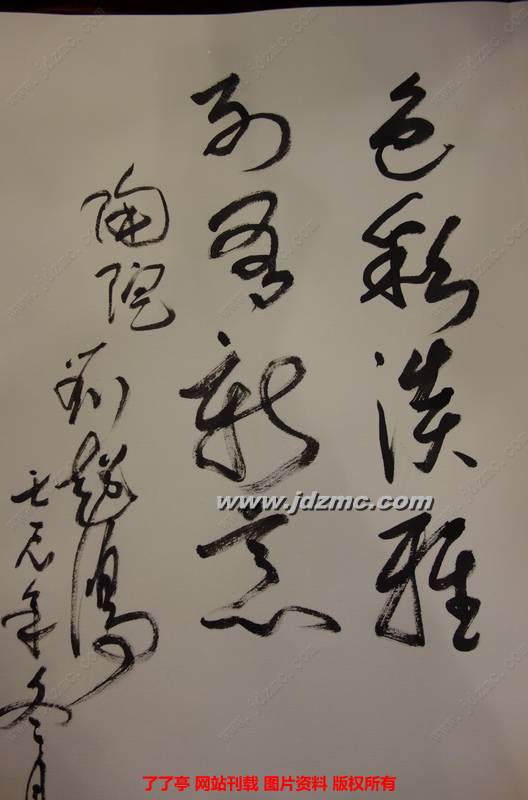 色彩淡雅
别有新意
陶院
刘超
壬辰年冬月
www.jdzmc.com
了了亭 网站刊载 图片资料 版权所有